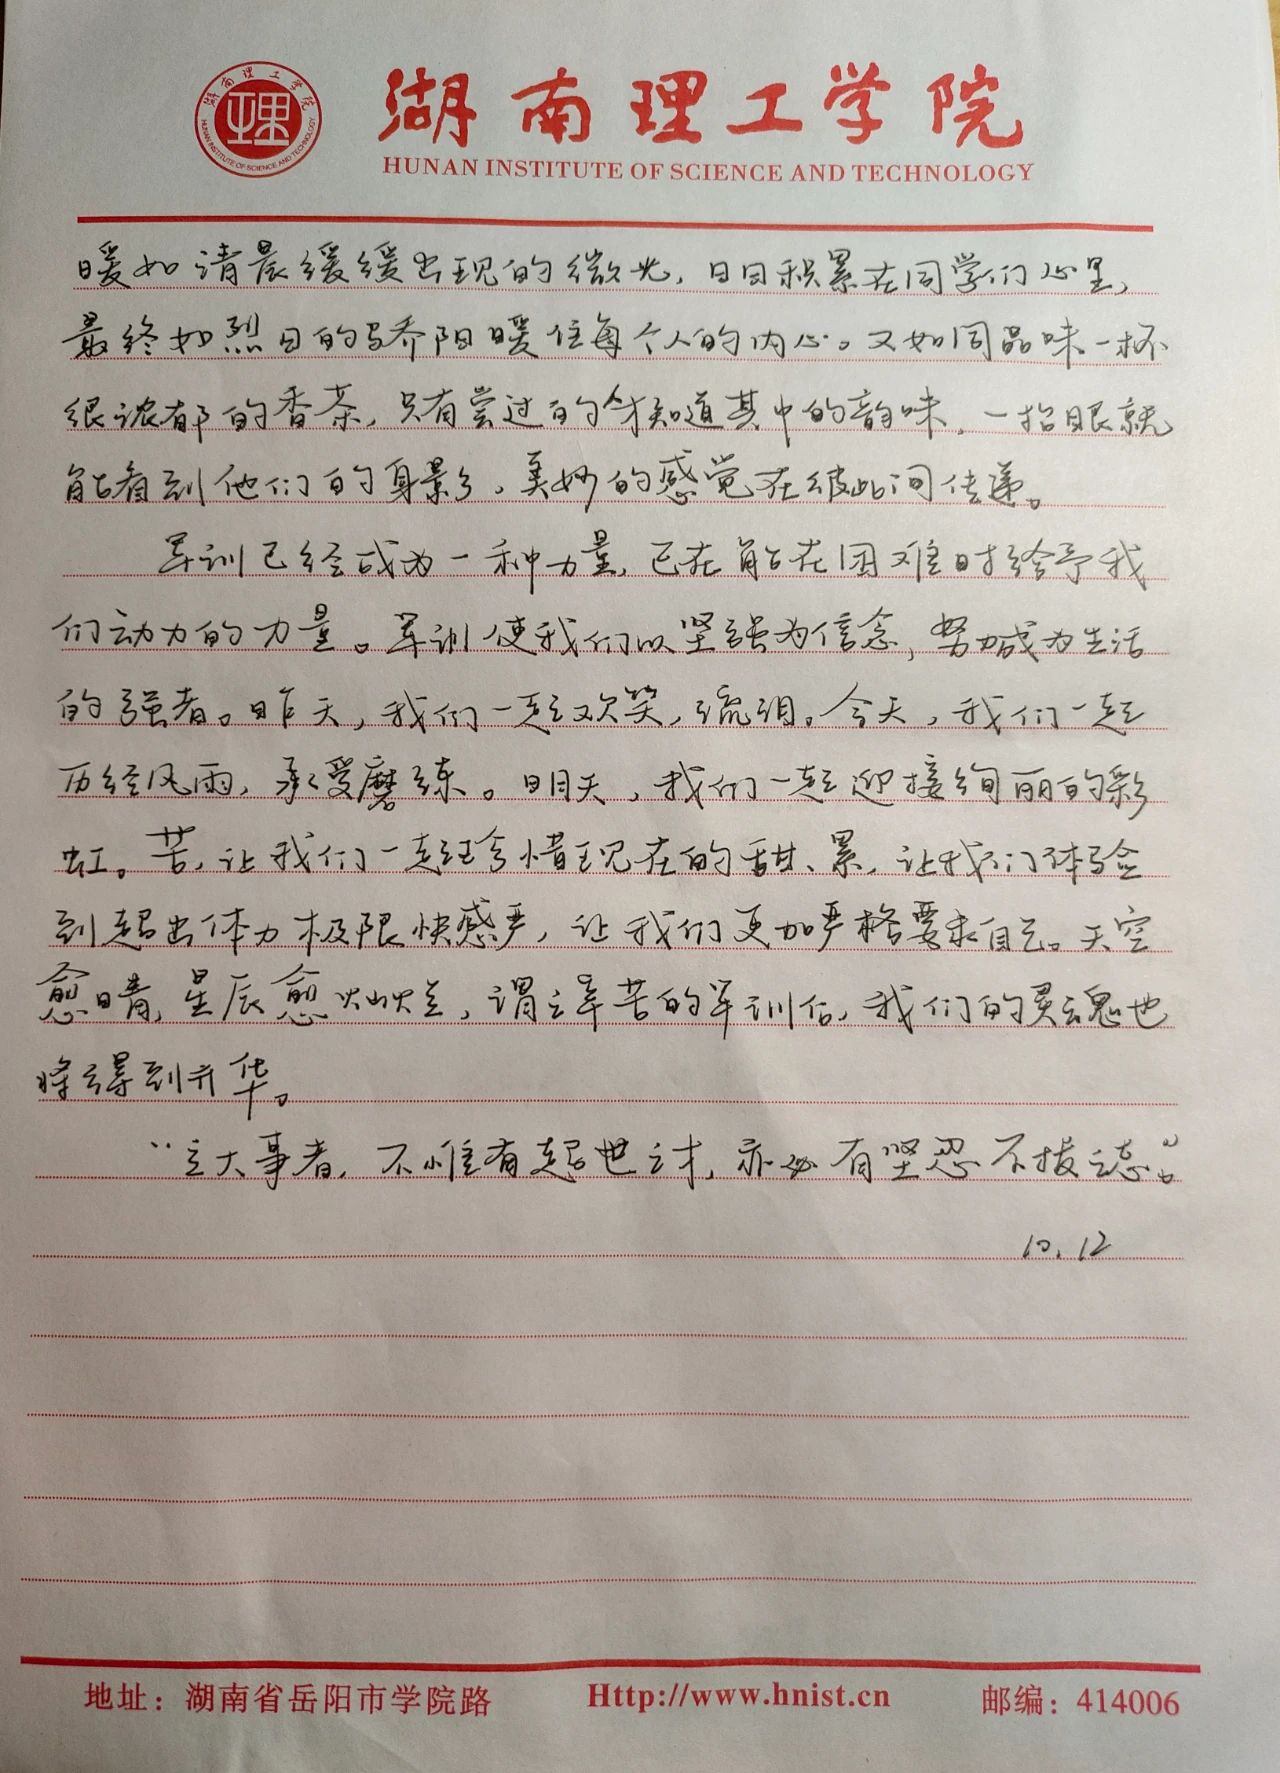 湖南理工学院
HUNAN INSTITUTE OF SCIENCE AND TECHNOLOGY
暖如清晨缓缓出现的微光，日日积累在同学们心里，
最终如烈日的骄阳暖住每个人的内心。又如同品味一杯
很浓郁的香茶，只有尝过的才知道其中的韵味，一抬眼就
能看到他们的身影，美妙的感觉在彼此间传递。
军训已经成为一种力量，已在能在困难时给予我
们动力的力量。军训使我们以坚强为信念，努力成为生活
的强者。昨天，我们一起欢笑，流泪。今天，我们一起
历经风雨，承受磨练。明天，我们一起迎接绚丽的彩
虹。苦，让我们一起珍惜现在的甜、累，让我们体验
到超出体力极限快感严，让我们更加严格要求自己。天空
愈晴，星辰愈灿烂，谓之辛苦的军训后，我们的灵魂也
将得到升华。
“立大事者，不惟有超世之才，亦必有坚忍不拔之志。”
10.12
地址：湖南省岳阳市学院路 Http://www.hnist.cn 邮编：414006